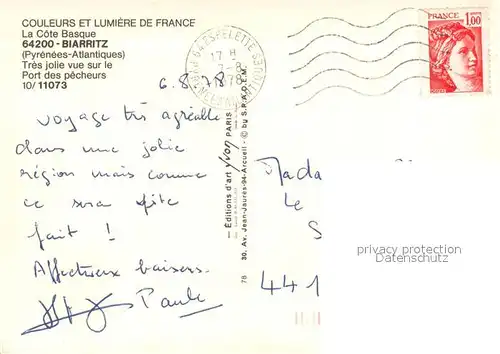 COULEURS ET LUMIÈRE DE FRANCE
La Côte Basque
64200 - BIARRITZ
(Pyrénées-Atlantiques)
Très jolie vue sur le
Port des pêcheurs
10/11073
64 ESPELETTE
17 H
8
78
FRANCE
1,00
6.8.78
voyage très agréable
dans une jolie
région mais comme
ce sera vite
fait !
Affectueux baisers.
Paule
— Éditions d'art yvon PARIS
30, Av. Jean-Jaurès-94-Arcueil - © by S.P.A.D.E.M.
78
Mada
Le
S
441
privacy protection
Datenschutz